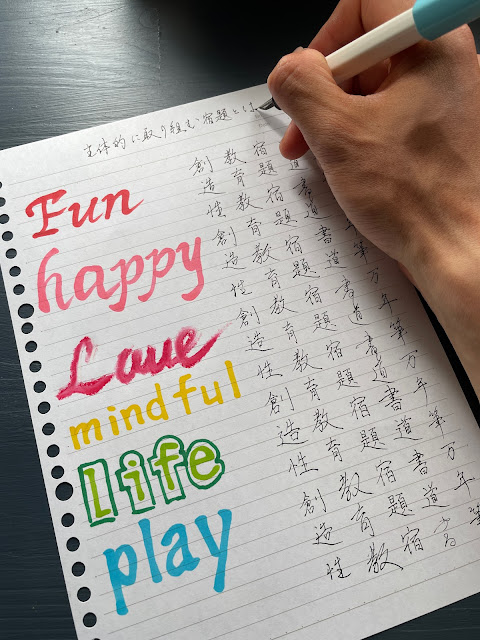 主体的に取り組む宿題とは
Fun
happy
Love
mindful
life
play
創 教 宿
造 育 題 道
性 教 宿 書
創 育 題 道
造 教 宿 書
性 育 題 道 万
創 教 宿 書 年
造 育 題 道 筆
性 教 宿 書 万
創 育 題 道 年
造 教 宿 書 筆
性 育 題 道
創 教 宿 書 万
造 育 題 道 年
性 教 宿 筆